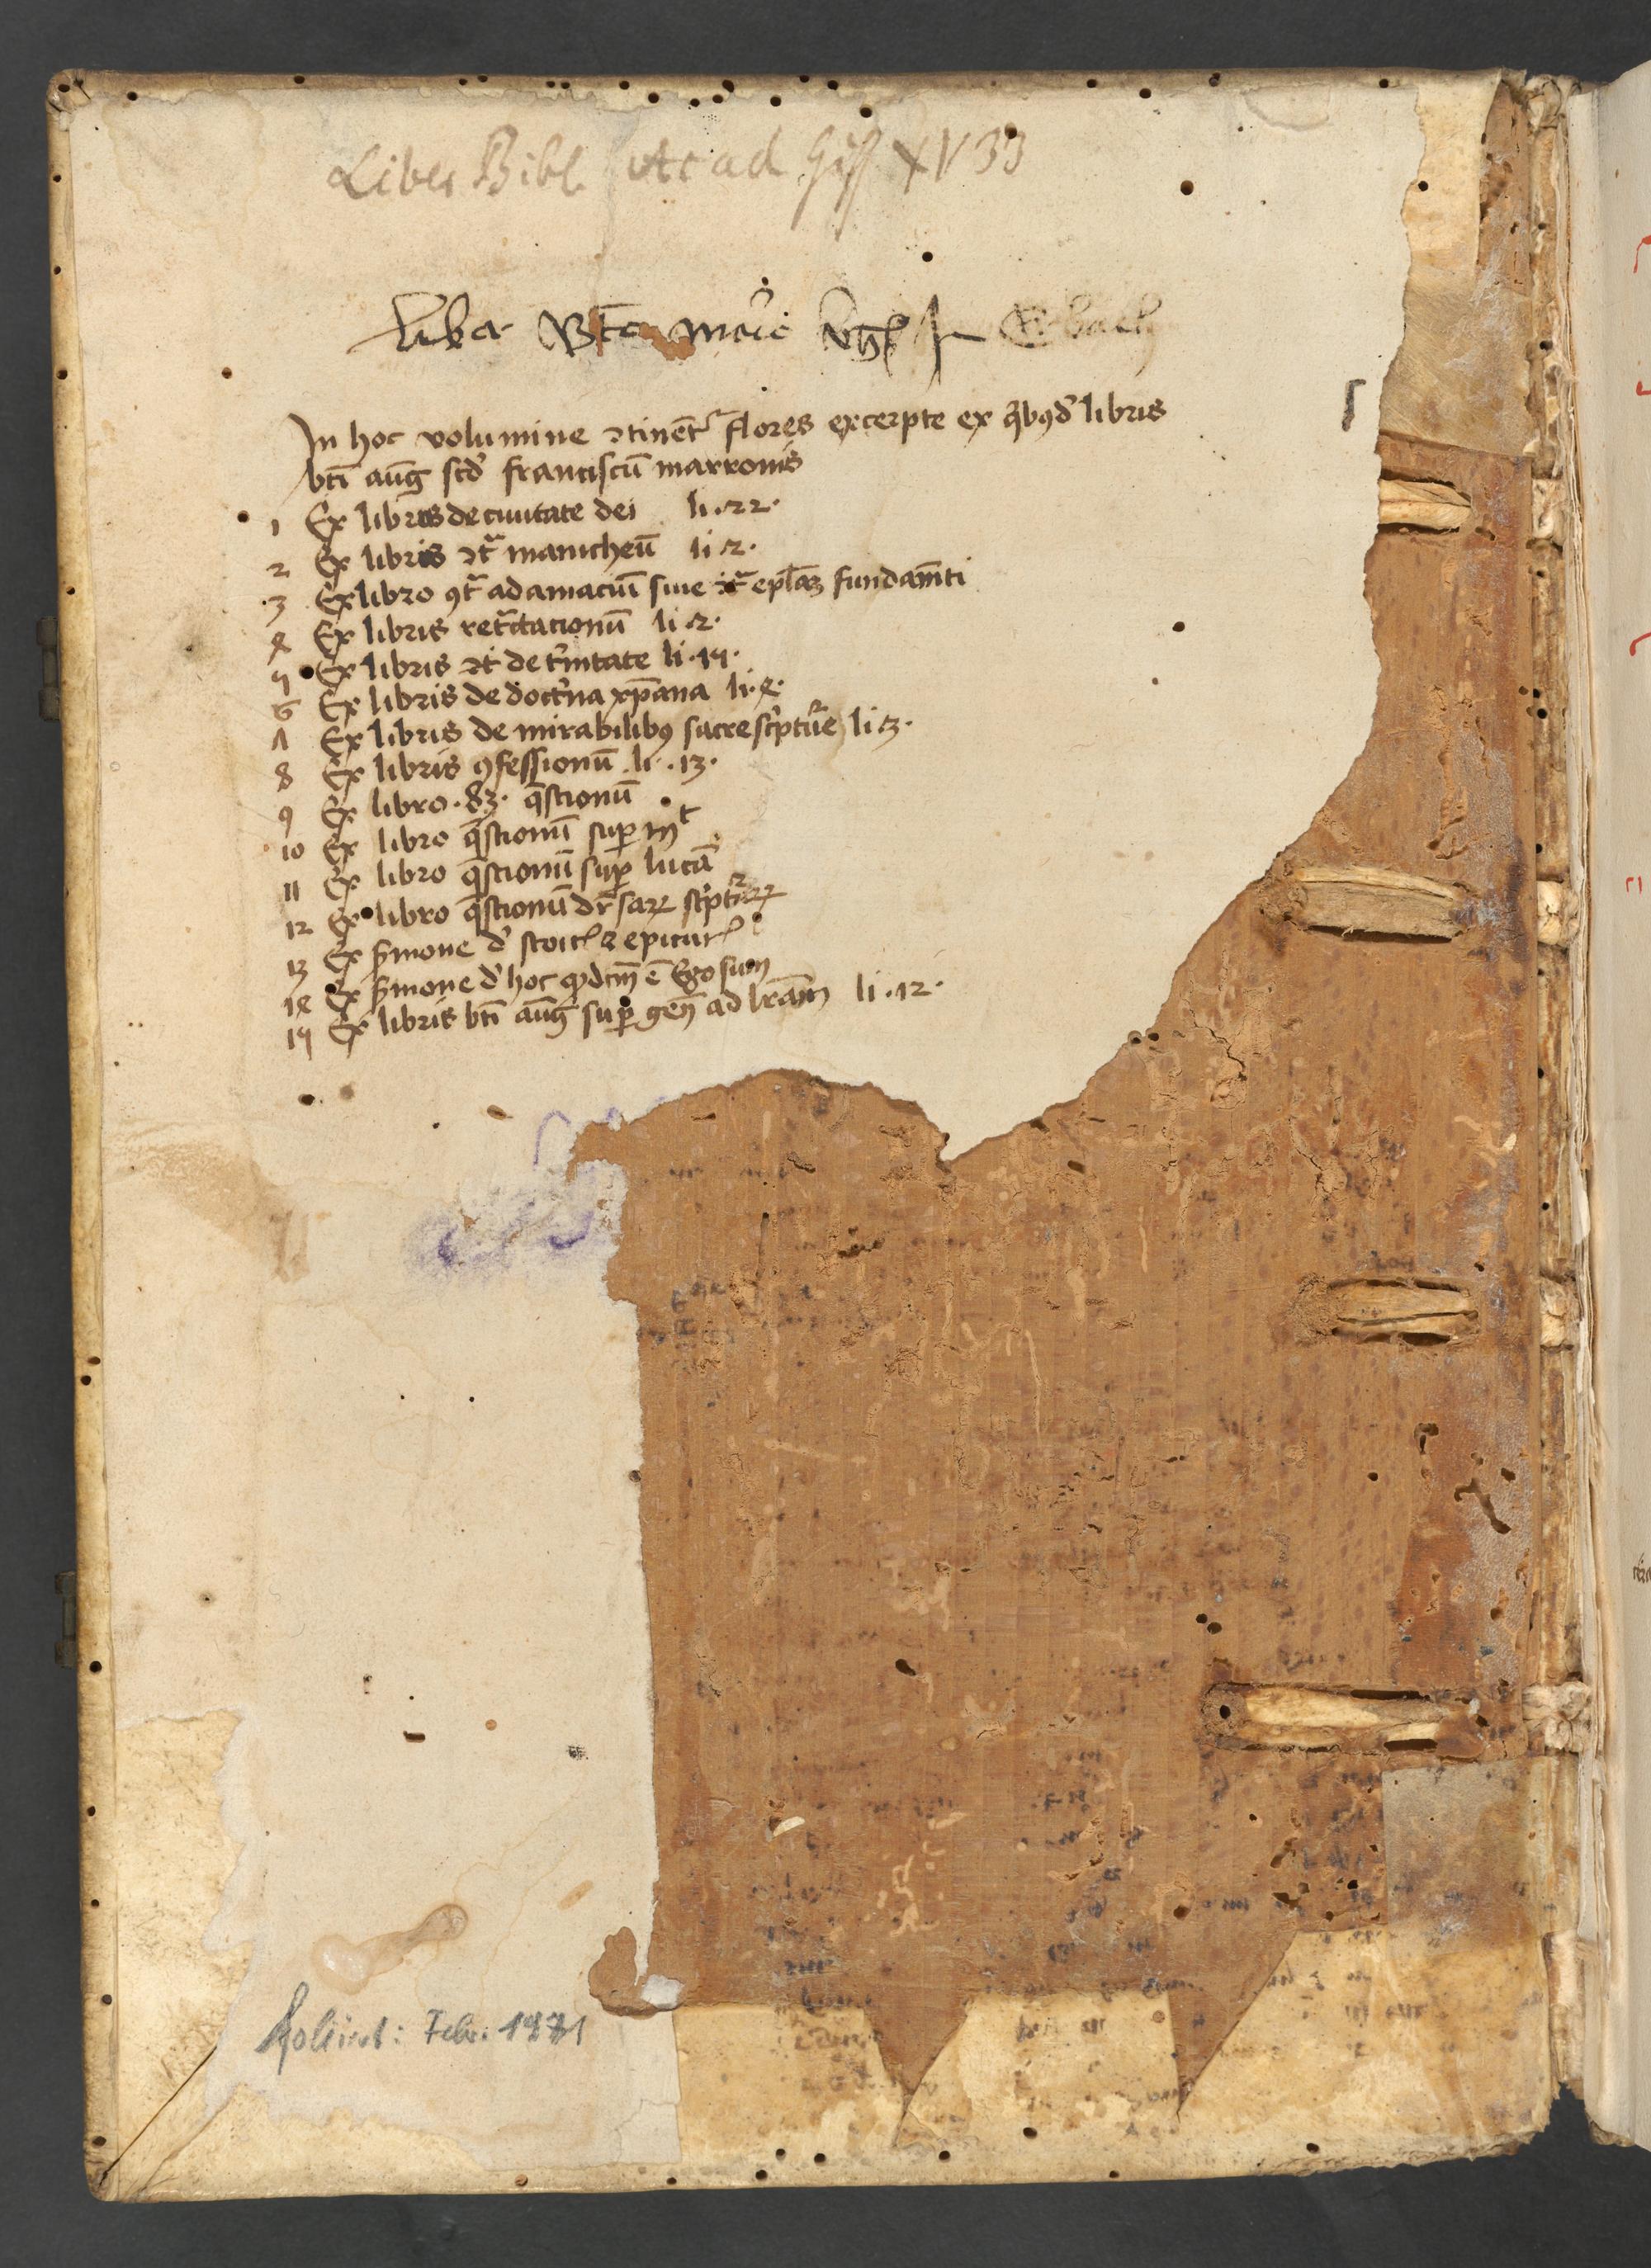 Liber Bibl. Acad Giss XV 33
Liber Bte marie virgīs in Erbach
In hoc volumine ꝯtinēt᷑ flores excerpte ex q̄bꝰd' libris
bti aug̅ scd' franciscū marronis
1 Ex libris de ciuitate dei li. 22.
2 Ex libris ꝯtᷓ manicheū li. 2.
3 Ex libro ꝯtᷓ adamaciū siue ꝯtᷓ epl̄aꝫ fundam̄ti
4 Ex libris retᷓctacionū li. 2.
5 Ex libris de t'nitate li. 15.
6 Ex libris de doct'na xp̄iana li. 4.
7 Ex libris de mirabilibꝰ sacre sc'ptur̄e li 3.
8 Ex libris ꝯfessionū li. 13.
9 Ex libro . 83 . q̄stionū
10 Ex libro q̄stionū suꝑ mt
11 Ex libro q̄stionū suꝑ lucā
12 Ex libro q̄stionū sc'pturaꝝ
13 Ex s̄mone d' stoicꝭ ⁊ epicurꝭ
14 Ex s̄mone d' hoc qd' dcm̄ ē Ego sum
15 Ex libris bti aug̅ suꝑ gen̄ ad lr̄am li. 12.
foliirt: Febr. 1971